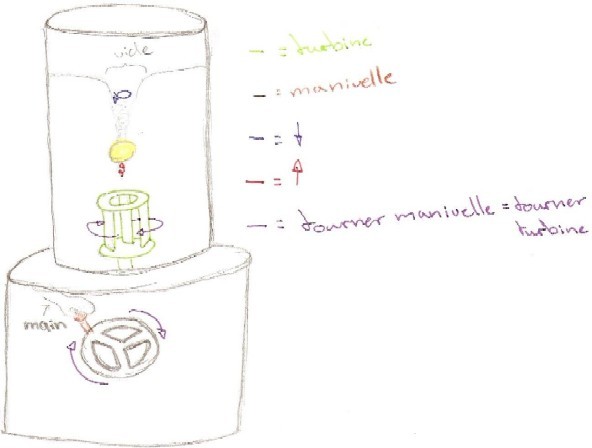 vide
— = turbine
— = manivelle
— = ↓
— = ↑
— = tourner manivelle = tourner
turbine
main